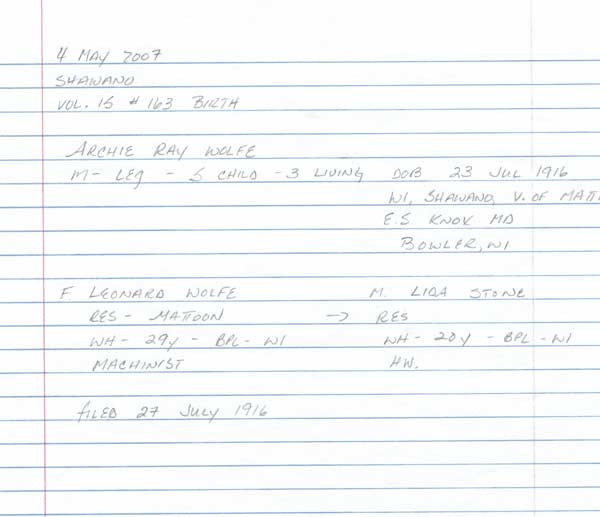 4 MAY 2007
SHAWANO
VOL. 15 # 163 BIRTH
ARCHIE RAY WOLFE
M - LEG - 5 CHILD - 3 LIVING DOB 23 JUL 1916
WI, SHAWANO, V. OF MATT
E.S. KNOX MD
BOWLER, WI
F. LEONARD WOLFE M. LIDA STONE
RES - MATTOON → RES
WH - 29y - BPL - WI WH - 20y - BPL - WI
MACHINIST HW.
FILED 27 JULY 1916